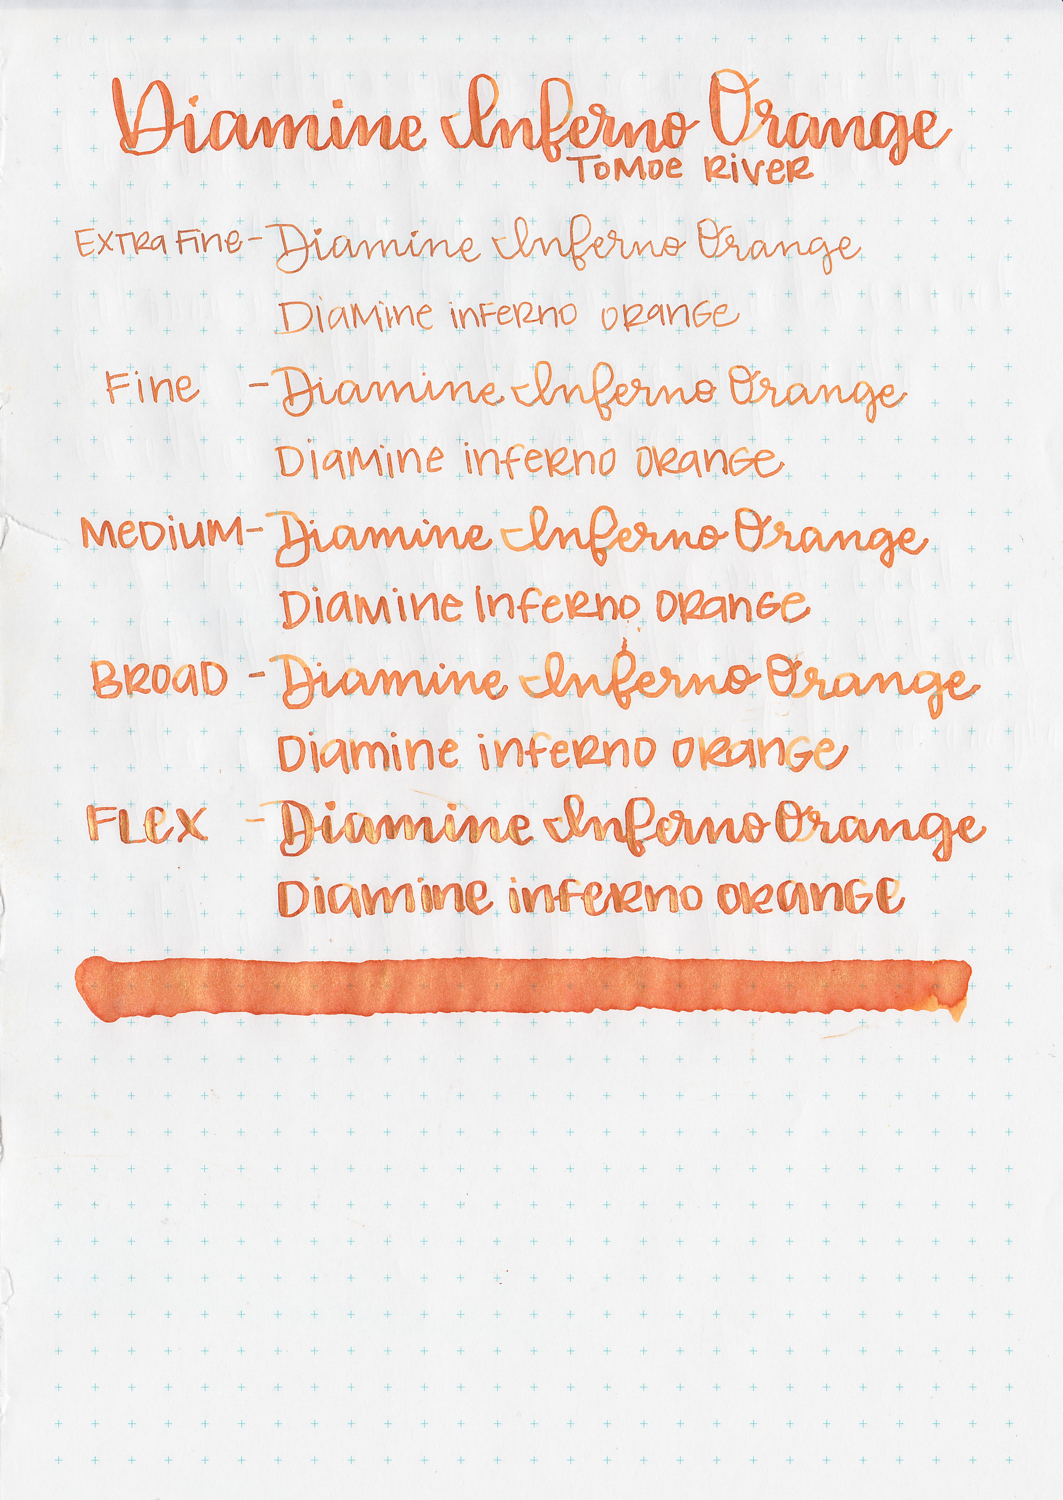 Diamine Inferno Orange
Tomoe River
Extra Fine - Diamine Inferno Orange
Diamine inferno orange
Fine - Diamine Inferno Orange
Diamine inferno orange
Medium - Diamine Inferno Orange
Diamine Inferno orange
Broad - Diamine Inferno Orange
Diamine inferno orange
Flex - Diamine Inferno Orange
Diamine inferno orange